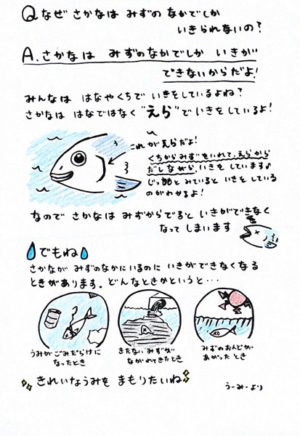 Q なぜ さかなは みずの なかでしか
いきられないの?
A. さかなは みずのなかでしか いきが
できないからだよ!
みんなは はなやくちで いきをしているよね?
さかなは はなではなく "えら"でいきをしているよ!
これがえらだよ!
くちからみずをいれて、えらから
だしながら いきをしています♪
じっとみていると いきをしている
のがわかるよ!
なので さかなは みずからでると いきができなく
なって しまいます
でもね
さかなが みずのなかにいるのに いきができなくなる
ときがあります。どんなときかというと…
うみがごみだらけに
なったとき
きたない みずが
ながれてきたとき
みずのおんどが
あがった とき
きれいなうみを まもりたいね
うーみーより